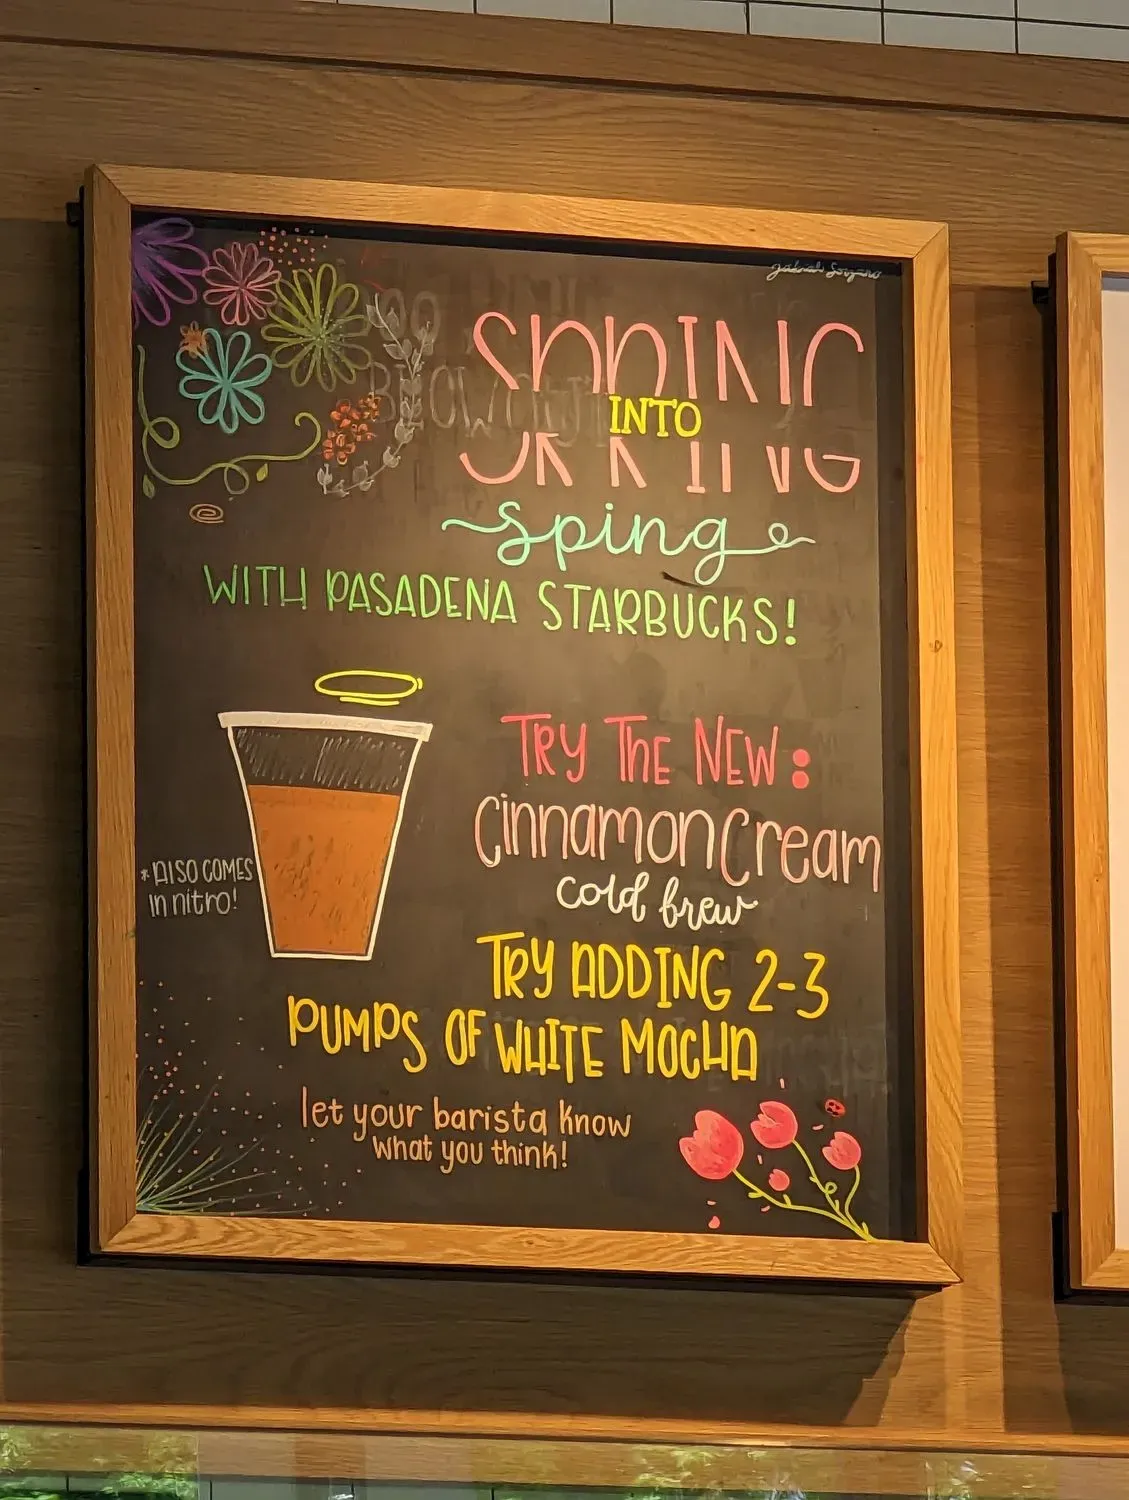 SPRING
INTO
sping
WITH PASADENA STARBUCKS!
TRY THE NEW:
cinnamon cream
cold brew
*ALSO COMES
in nitro!
TRY ADDING 2-3
PUMPS OF WHITE MOCHA
let your barista know
what you think!